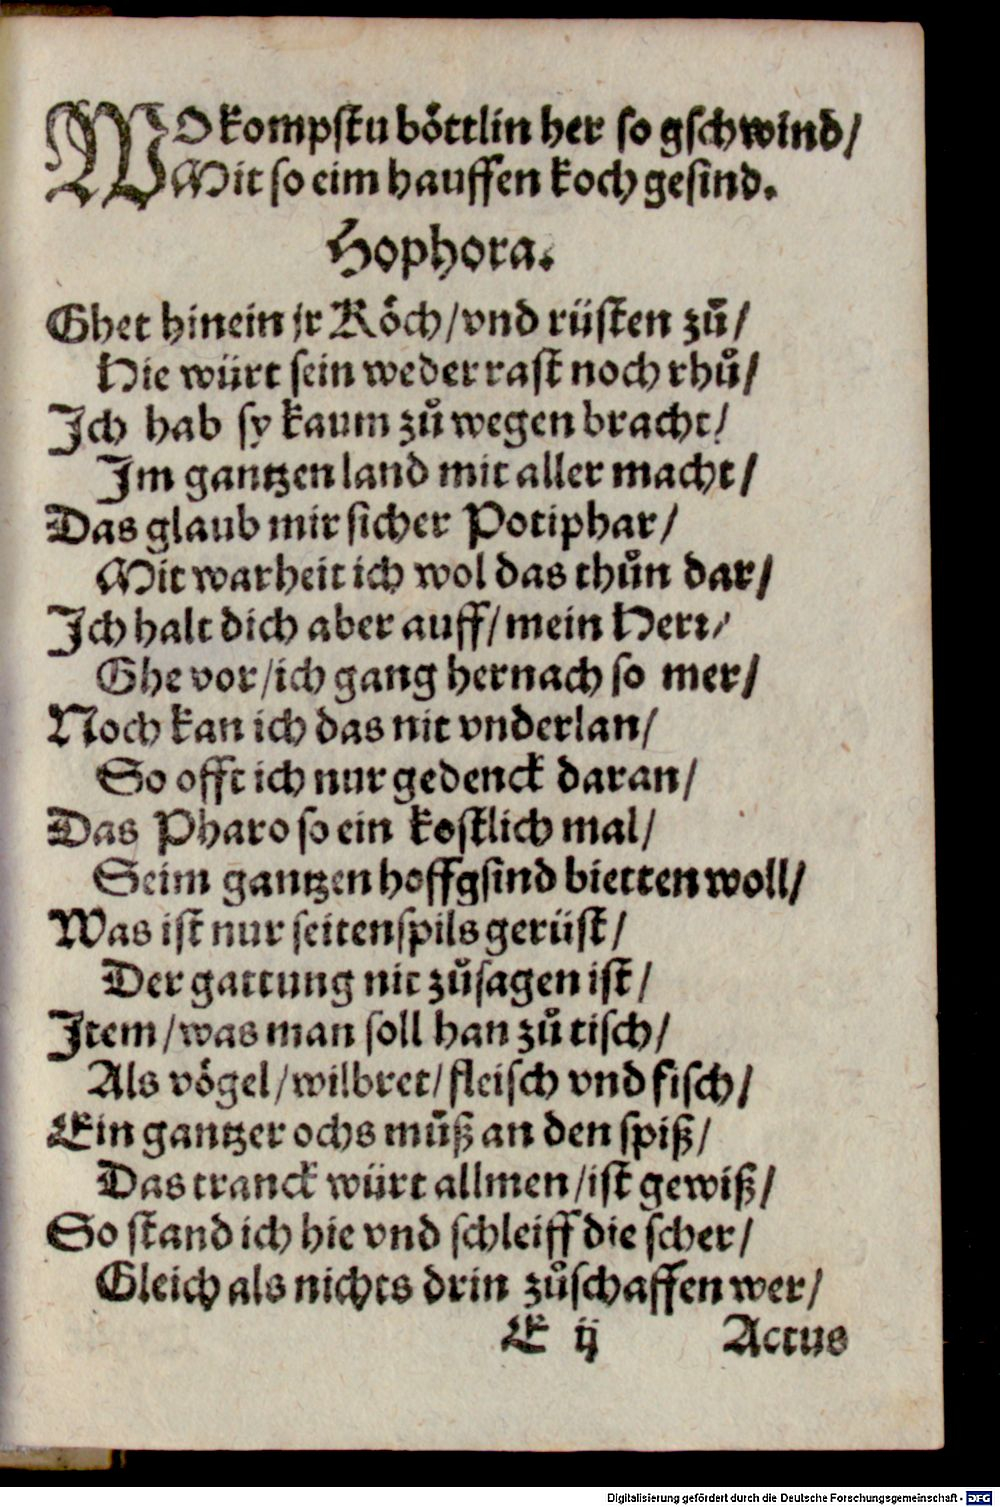 WO kompstu böttlin her so gschwind/
Mit so eim hauffen koch gesind.
Hophora.
Ghet hinein jr Köch/vnd rüsten zů/
Hie würt sein weder rast noch rhů/
Ich hab sy kaum zů wegen bracht/
Im gantzen land mit aller macht/
Das glaub mir sicher Potiphar/
Mit warheit ich wol das thůn dar/
Ich halt dich aber auff/mein Herr/
Ghe vor/ich gang hernach so mer/
Noch kan ich das nit vnderlan/
So offt ich nur gedenck daran/
Das Pharo so ein kostlich mal/
Seim gantzen hoffgsind bietten woll/
Was ist nur seitenspils gerüst/
Der gattung nit zůsagen ist/
Item/was man soll han zů tisch/
Als vögel/wilbret/fleisch vnd fisch/
Ein gantzer ochs můß an den spiß/
Das tranck würt allmen/ist gewiß/
So stand ich hie vnd schleiff die scher/
Gleich als nichts drin zůschaffen wer/
E ij Actus
Digitalisierung gefördert durch die Deutsche Forschungsgemeinschaft - DFG